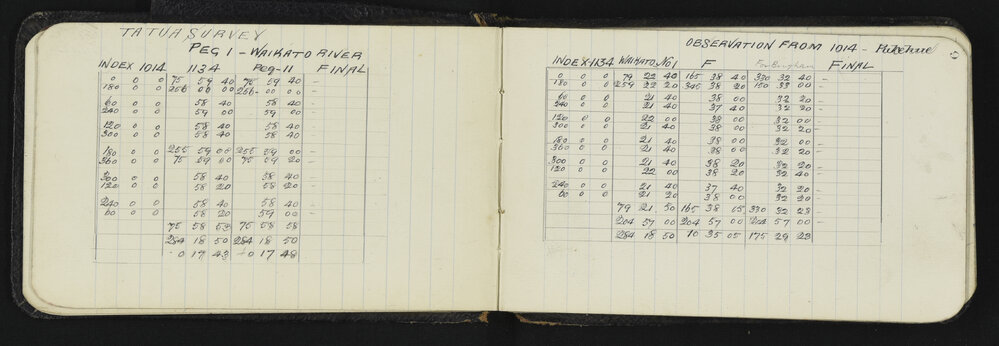 TATUA SURVEY
PEG 1 - WAIKATO RIVER
INDEX 1014 1134 Peg-11 FINAL
0 0 0 75 59 40 75 59 40 -
180 0 0 256 00 00 256 00 00 -
60 0 0 58 40 58 40 -
240 0 0 59 00 59 00 -
120 0 0 58 40 58 40 -
300 0 0 58 40 58 40 -
180 0 0 255 59 00 255 59 00 -
360 0 0 75 59 00 75 59 20 -
300 0 0 58 40 58 40 -
120 0 0 58 20 58 20 -
240 0 0 58 40 58 40 -
60 0 0 58 20 59 00 -
75 58 53 75 58 58
284 18 50 284 18 50
0 17 43 0 17 48
OBSERVATION FROM 1014 - Pukehue
INDEX 1134 WAIKATO No 1 F FINAL
0 0 0 79 22 40 165 38 40 330 32 40 -
180 0 0 259 22 20 345 38 20 150 33 00 -
60 0 0 21 40 38 00 32 20 -
240 0 0 21 40 37 40 32 20 -
120 0 0 22 00 38 00 32 00 -
300 0 0 21 40 38 20 32 20 -
180 0 0 21 40 38 00 32 00 -
360 0 0 21 40 38 00 32 20 -
300 0 0 21 40 38 20 32 20 -
120 0 0 22 00 38 20 32 40 -
240 0 0 21 40 37 40 32 20 -
60 0 0 21 20 38 00 32 20 -
79 21 50 165 38 05 330 32 23 -
204 57 00 204 57 00 204 57 00 -
284 18 50 10 35 05 175 29 23 -